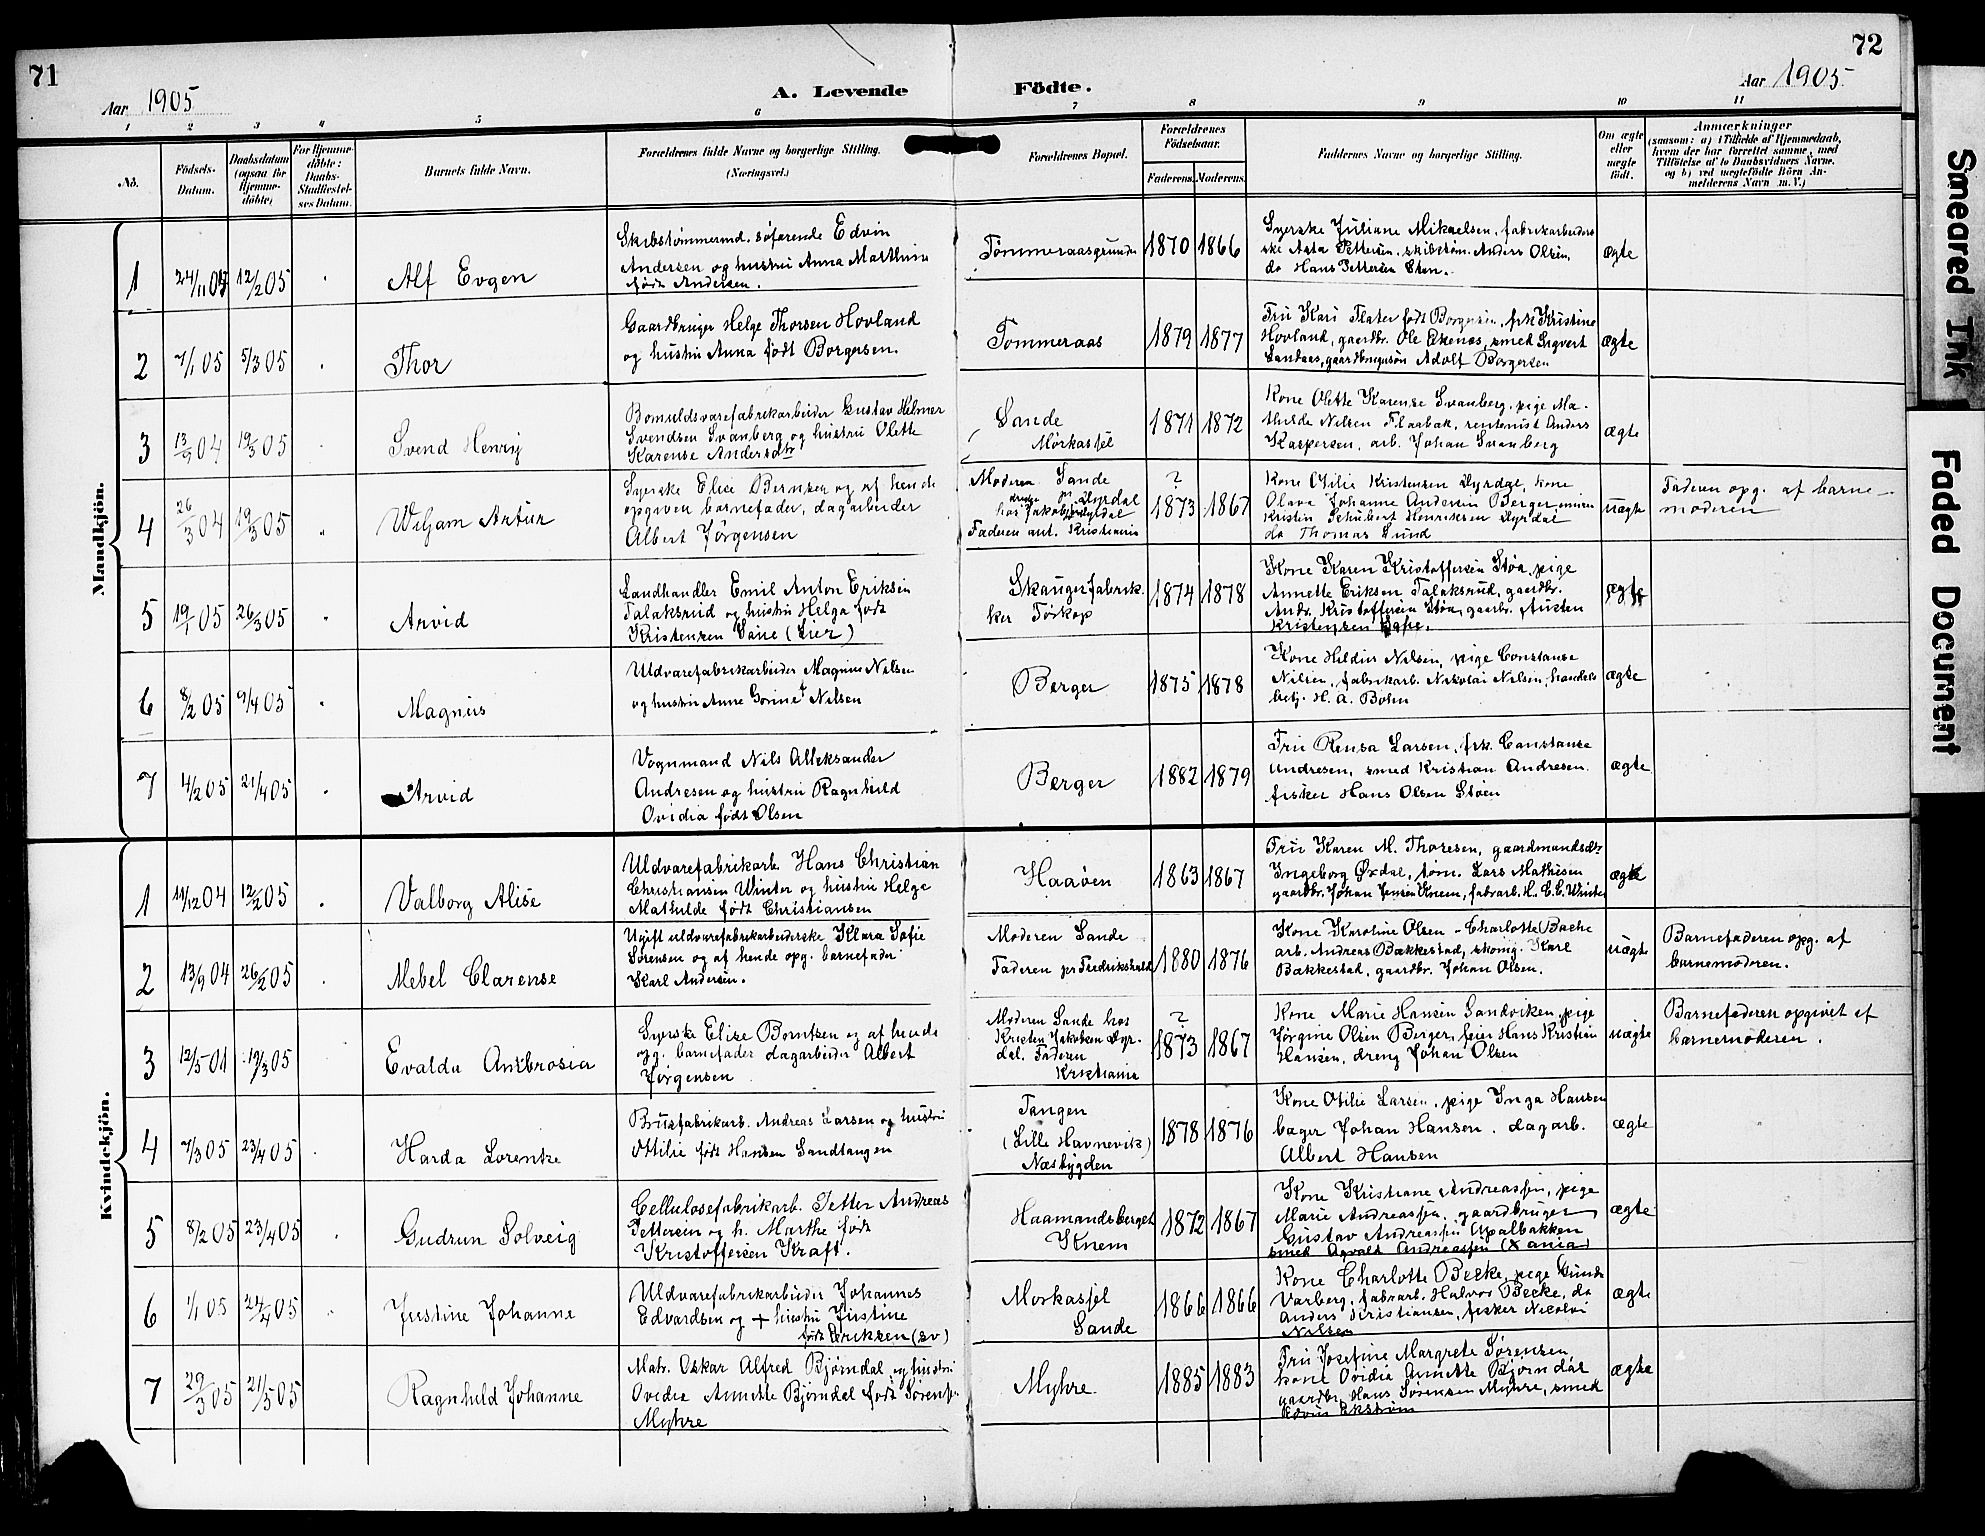 71
72
Aar 1905
A. Levende Födte.
Aar 1905
1 2 3 4 5 6 7 8 9 10 11
No.
Födsels-
Datum.
Daabsdatum
(ogsaa for
Hjemme-
döbte)
For Hjemme-
döbte:
Daabs-
Stadfæstel-
ses Datum.
Barnets fulde Navn.
Forældrenes fulde Navne og borgerlige Stilling.
(Næringsvei.)
Forældrenes Bopæl.
Forældrenes
Födselsaar.
Faderens. Moderens.
Faddernes Navne og borgerlige Stilling.
Om ægte
eller
uægte
födt.
Anmærkninger
(saasom: a) i Tilfælde af Hjemmedaab,
hvem der har forrettet samme, med
Tilföielse af to Daabsvidners Navne,
og b) ved uægtefödte Börn An-
melderens Navn m. V.)
Mandkjön.
1 24/11 04 12/2 05 Alf Evgen
Skibstømmermd. søfarende Edvin
Andersen og hustru Anna Matthea
født Andersen.
Tømmeraasgrunden 1870 1866
Syerske Juliane Mikaelsen, fabrikarbeider-
ske Asta Pettersen, skibstøm. Anders Olsen,
do Hans Pettersen
ægte
2 7/1 05 5/3 05 Thor
Gaardbruger Helge Thorsen Hovland
og hustru Anna født Borgersen.
Tommeraas 1879 1877
Fru Kari født Borgersen, frk Kristine
Hovland, gaardbr. Ole Ekenæs, smed Sigvert
Sandaas, gaardbrugersøn Adolf Borgersen
ægte
3 13/9 04 19/3 05 Svend Henry
Bomuldsvarefabrikarbeider Gustav Helmer
Svendsen Svanberg og hustru Olette
Karense Andersdtr
Sande
Mørkassjel
1871 1872
Kone Olette Karense Svanberg, pige Ma-
thilde Nilsen Flaabak, rentenist Anders
Kaspersen, arb. Johan Svanberg
ægte
4 26/3 04 19/3 05 Wiljam Artur
Syerske Elise Berntzen og af hende
opgiven barnefader, dagarbeider
Albert Jørgensen
Moderen Sande
Dyrdal
hos Jakobsen Dyrdal
Faderen ant. Kristiania
? 1873 1867
Kone Otilie Kristensen Dyrdal, kone
Olava Johanne Andersen Berger
Kristin Schubert Henriksen Dyrdal
do Thomas Lund
uægte
Faderen opg. af barne-
moderen
5 19/1 05 26/3 05 Arvid
Landhandler Emil Anton Eriksen
Talaksrud og hustru Helga født
Kristensen (Lier)
Skaugerfabrik-
ker Torkop
1874 1878
Kone Karen Kristoffersen Støa, pige
Annette Eriksen Talaksrud, gaardbr.
Andr. Kristoffersen Støa, gaardbr. Austen
Kristensen
ægte
6 8/2 05 9/4 05 Magnus
Uldvarefabrikarbeider Magnus Nilsen
og hustru Anne Gorine Nilsen
Berger 1875 1878
Kone Hildur Nilsen, pige Constanse
Nilsen, fabrikarb. Nikolai Nilsen, handels-
betj. H. A. Bohn
ægte
7 4/2 05 21/4 05 Arvid
Vognmand Nils Alleksander
Andresen og hustru Ragnhild
Ovidia født Olsen
Berger 1882 1879
Fru Rensa Larsen, frk. Constanse
Andresen, smed Kristian Andresen
fisker Hans Olsen Støen
ægte
Kvindekjön.
1 11/12 04 12/2 05 Valborg Alise
Uldvarefabrikarb. Hans Christian
Christiansen Winter og hustru Helge
Mathilde født Christiansen
Haaøen 1863 1867
Fru Karen M. Thoresen, gaardmandsdtr
Ingeborg Ørdal, tøm. Lars Mathisen
gaardbr. Johan Jensen Knem, fabarb. H. C. C. Winter
ægte
2 13/9 04 26/2 05 Mebel Clarense
Ugift uldvarefabrikarbeiderske Klara Sofie
Sørensen og af hende opg. barnefader
Karl Andersen.
Moderen Sande
Faderen pr Fredrikshald
1880 1876
Kone Karoline Olsen - Charlotte Bache
arb. Andreas Bækkestad, skomg. Karl
Bækkestad, gaardbr. Johan Olsen.
uægte
Barnefaderen opg. af
barnemoderen.
3 12/5 01 19/3 05 Evalda Ambrosia
Syerske Elise Berntzen og af hende
opg. barnefader dagarbeider Albert
Jørgensen
Moderen Sande hos
Kristen Jakobsen Dyr-
dal. Faderen
Kristiania
? 1873 1867
Kone Marie Hansen Sandviken, pige
Jørgine Olsen Berger, feier Hans Kristian
Hansen, dreng Johan Olsen
uægte
Barnefaderen opgivet af
barnemoderen.
4 7/3 05 23/4 05 Harda Lorentze
Brusfabrikarb. Andreas Larsen og hustru
Ottilie født Hansen Sandtangen
Tangen
(Lille Havnevik)
Næsbygden
1878 1876
Kone Otilie Larsen, pige Inga Hansen
bager Johan Hansen, dagarb.
Albert Hansen
ægte
5 8/2 05 23/4 05 Gudrun Solveig
Cellulosefabrikarb. Petter Andreas
Pettersen og h. Marthe født
Kristoffersen Kraft.
Haamandsberget
Knem
1872 1867
Kone Kristiane Andreassen, pige
Marie Andreassen, gaardbruger
Gustav Andreassen Opalbakken
smed Agvald Andreassen (Xania)
ægte
6 1/1 05 24/4 05 Justine Johanne
Uldvarefabrikarbeider Johannes
Edvardsen og + hustru Justine
født Eriksen (sv)
Morkassjel
Sande
1866 1866
Kone Charlotte Becke, pige Gunda
Varberg, fabarb. Halvor Becke, do
Anders Kristiansen, fisker Nicolai
Nilsen
ægte
7 29/3 05 21/5 05 Ragnhild Johanne
Matr. Oskar Alfred Bjørndal og hustru
Ovidia Annette Bjørndal født Sørens.
Myhre
Myhre 1885 1883
Fru Josefine Margrete Sørensen,
kone Ovidia Annette Bjørndal
gaardbr. Hans Sørensen Myhre, smed
Edvin Ekstrøm
ægte
Smeared Ink
Faded Document